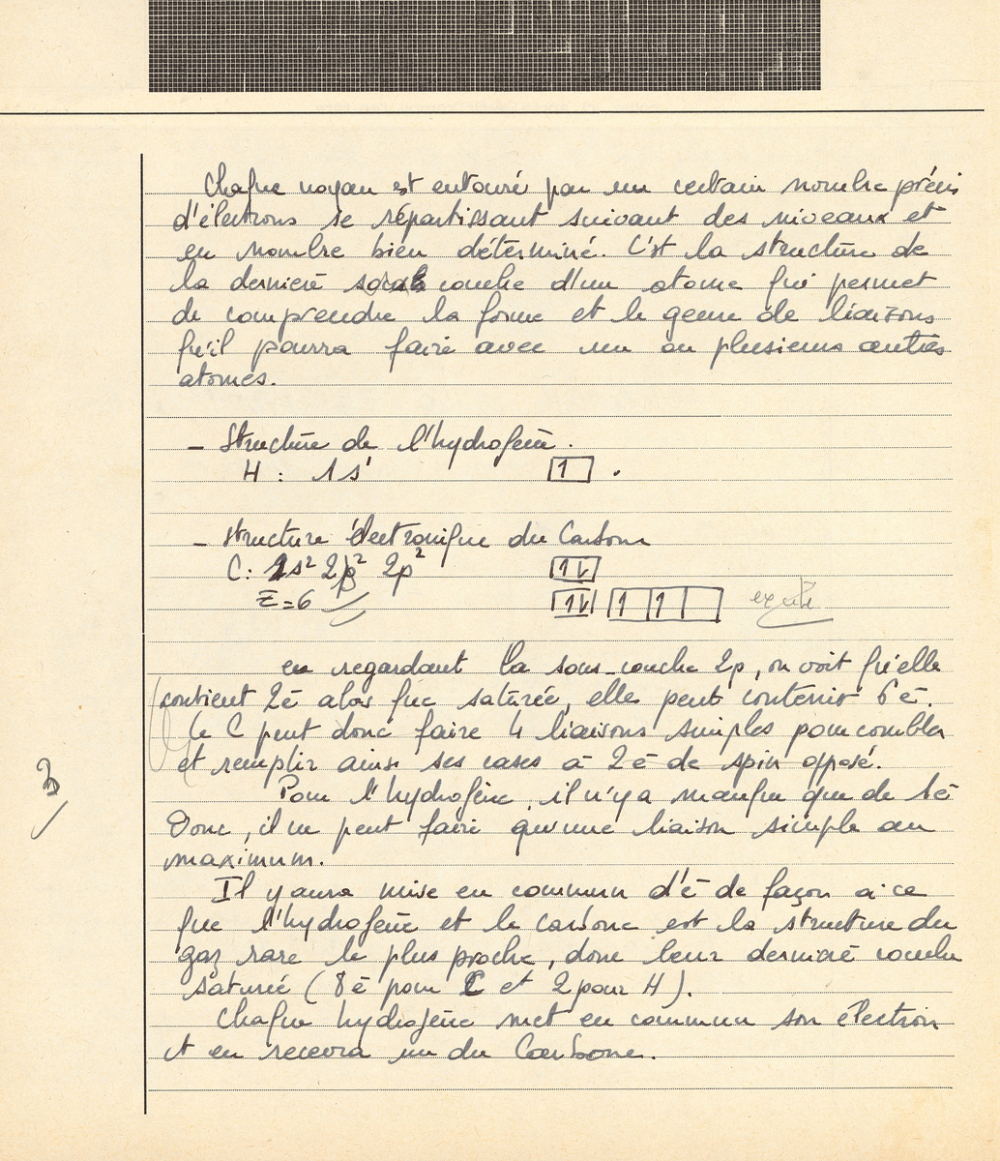 Chaque noyau est entouré par un certain nombre précis
d'électrons se répartissant suivant des niveaux et
en nombre bien déterminé. C'est la structure de
la dernière couche d'un atome qui permet
de comprendre la forme et le genre de liaizons
qu'il pourra faire avec un ou plusieurs autres
atomes.
- Structure de l'hydrogène.
H : 1s¹ [1] .
- Structure électronique du Carbone
C: 1s² 2p² 2p² [1↓]
Z=6 [1↓] [1|1| ]
en regardant la sous-couche 2p, on voit qu'elle
contient 2ē alors que saturée, elle peut contenir 6ē.
le C peut donc faire 4 liaisons simples pour combler
et remplir ainsi ses cases à 2ē de spin opposé.
Pour l'hydrogène, il n'y a manque que de 1ē
Donc, il ne peut faire qu'une liaison simple au
maximum.
Il y aura mise en commun d'ē de façon à ce
que l'hydrogène et le carbone est la structure du
gaz rare le plus proche, donc leur dernière couche
saturée (8ē pour C et 2 pour H).
Chaque hydrogène met en commun son électron
et en recevra un du Carbone.
3